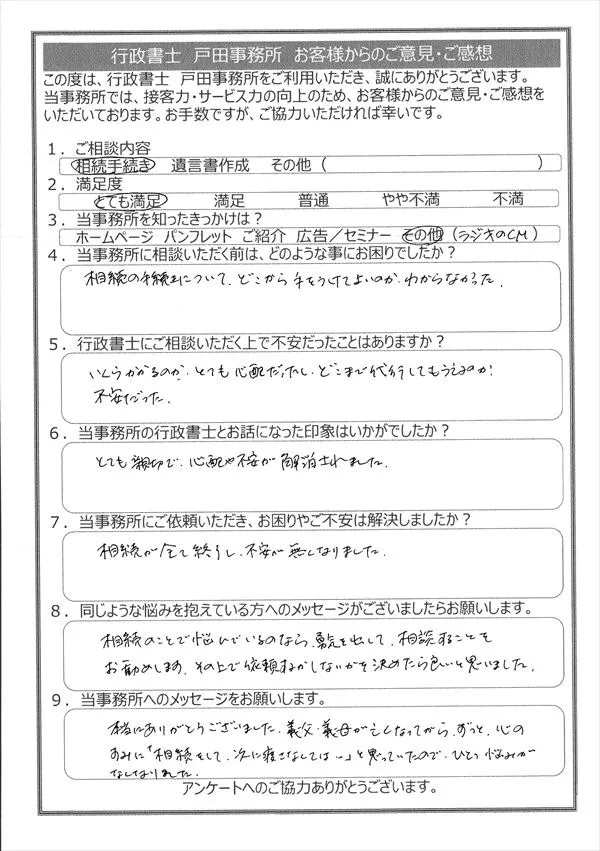 行政書士 戸田事務所 お客様からのご意見・ご感想
この度は、行政書士 戸田事務所をご利用いただき、誠にありがとうございます。
当事務所では、接客力・サービス力の向上のため、お客様からのご意見・ご感想を
いただいております。お手数ですが、ご協力いただければ幸いです。
1．ご相談内容
相続手続き 遺言書作成 その他（ ）
2．満足度
とても満足 満足 普通 やや不満 不満
3．当事務所を知ったきっかけは？
ホームページ パンフレット ご紹介 広告／セミナー その他（ラジオのCM）
4．当事務所に相談いただく前は、どのような事にお困りでしたか？
相続の手続きについて、どこから手をつけてよいのか、わからなかった。
5．行政書士にご相談いただく上で不安だったことはありますか？
いくらかかるのか、とても心配だったし、どこまで代行してもらえるのか、
不安だった。
6．当事務所の行政書士とお話になった印象はいかがでしたか？
とても親切で、心配や不安が解消されました。
7．当事務所にご依頼いただき、お困りやご不安は解決しましたか？
相続が全て終了し、不安が無くなりました。
8．同じような悩みを抱えている方へのメッセージがございましたらお願いします。
相続のことで悩んでいるのなら、勇気を出して、相談することを
お勧めします。その上で依頼するかしないかを決めたら良いと思いました。
9．当事務所へのメッセージをお願いします。
本当にありがとうございました。義父・義母が亡くなってから、ずっと、心の
すみに「相続をして、次に残さなくては…」と思っていたので、ひとつ悩みが
なくなりました。
アンケートへのご協力ありがとうございます。